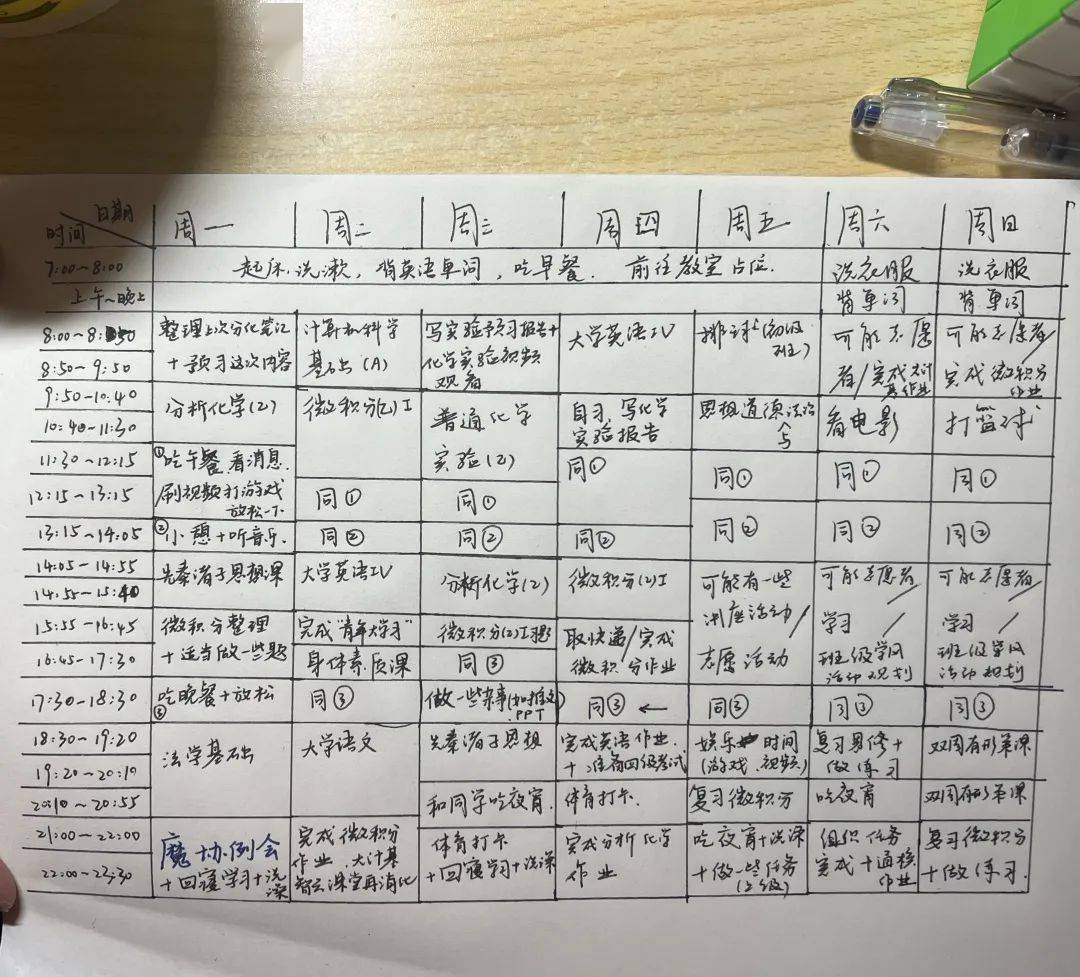 日期
时间
周一 周二 周三 周四 周五 周六 周日
7:00~8:00 起床.洗漱,背英语单词,吃早餐. 前往教室占位. 洗衣服 洗衣服
上午~晚上 背单词 背单词
8:00~8:50 整理上次分化笔记 计算机科学 写实验预习报告+ 大学英语IV 排球(初级 可能志愿 可能志愿者/
8:50~9:50 +预习这次内容 基础(A) 化学实验视频 班) 者/完成大计 完成微积分
观看 基作业 作业
9:50-10:40 分析化学(2) 微积分(2)I 普通化学 自习,写化学 思想道德与法治 看电影 打篮球
10:40-11:30 实验报告
11:30~12:15 ①吃午餐,看消息. 实验(2) 同① 同① 同① 同①
12:15~13:15 刷视频打游戏 同① 同①
放松一下
13:15~14:05 ②小憩+听音乐. 同② 同② 同② 同② 同② 同②
14:05-14:55 先秦诸子思想课 大学英语IV 分析化学(2) 微积分(2)I 可能有一些 可能志愿者/ 可能志愿者/
14:55-15:40 讲座活动/
15:55-16:45 微积分整理 完成“青年大学习” 微积分(2)I习题 取快递/完成 学习/ 学习/
16:45-17:30 +适当做一些题 身体素质课 同③ 微积分作业 志愿活动 班级学风 班级学风
活动规划 活动规划
17:30-18:30 吃晚餐+放松 同③ 做一些杂事(如推文 同③← 同③ 同③ 同③
③ .PPT
18:30-19:20 法学基础 大学语文 先秦诸子思想 完成英语作业. 娱乐时间 复习男修+ 双周有形策课
19:20-20:10 +准备四级考试 (游戏.视频) 做练习
20:10~20:55 和同学吃夜宵. 体育打卡. 复习微积分 吃夜宵 双周有形策课
21:00~22:00 魔协例会 完成微积分 体育打卡 完成分析化学 吃夜宵+洗漱 组织任务 复习微积分
22:00-23:30 +回寝学习+洗漱 作业.大计基 +回寝学习+洗漱 作业 +做一些任务 完成+ +做练习.
课堂再消化 (班级) 作业